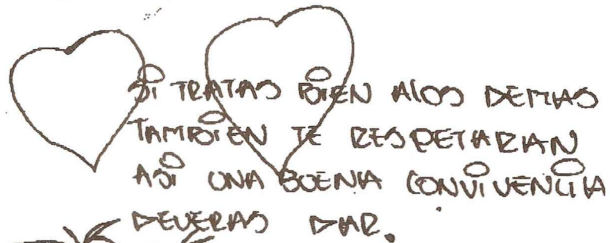 Si TRATAS BiEN AlOS DEMAS
TAMBiEN TE RESPETARAN
ASi UNA BUENA CONViVENCiA
DEVERAS DAR.